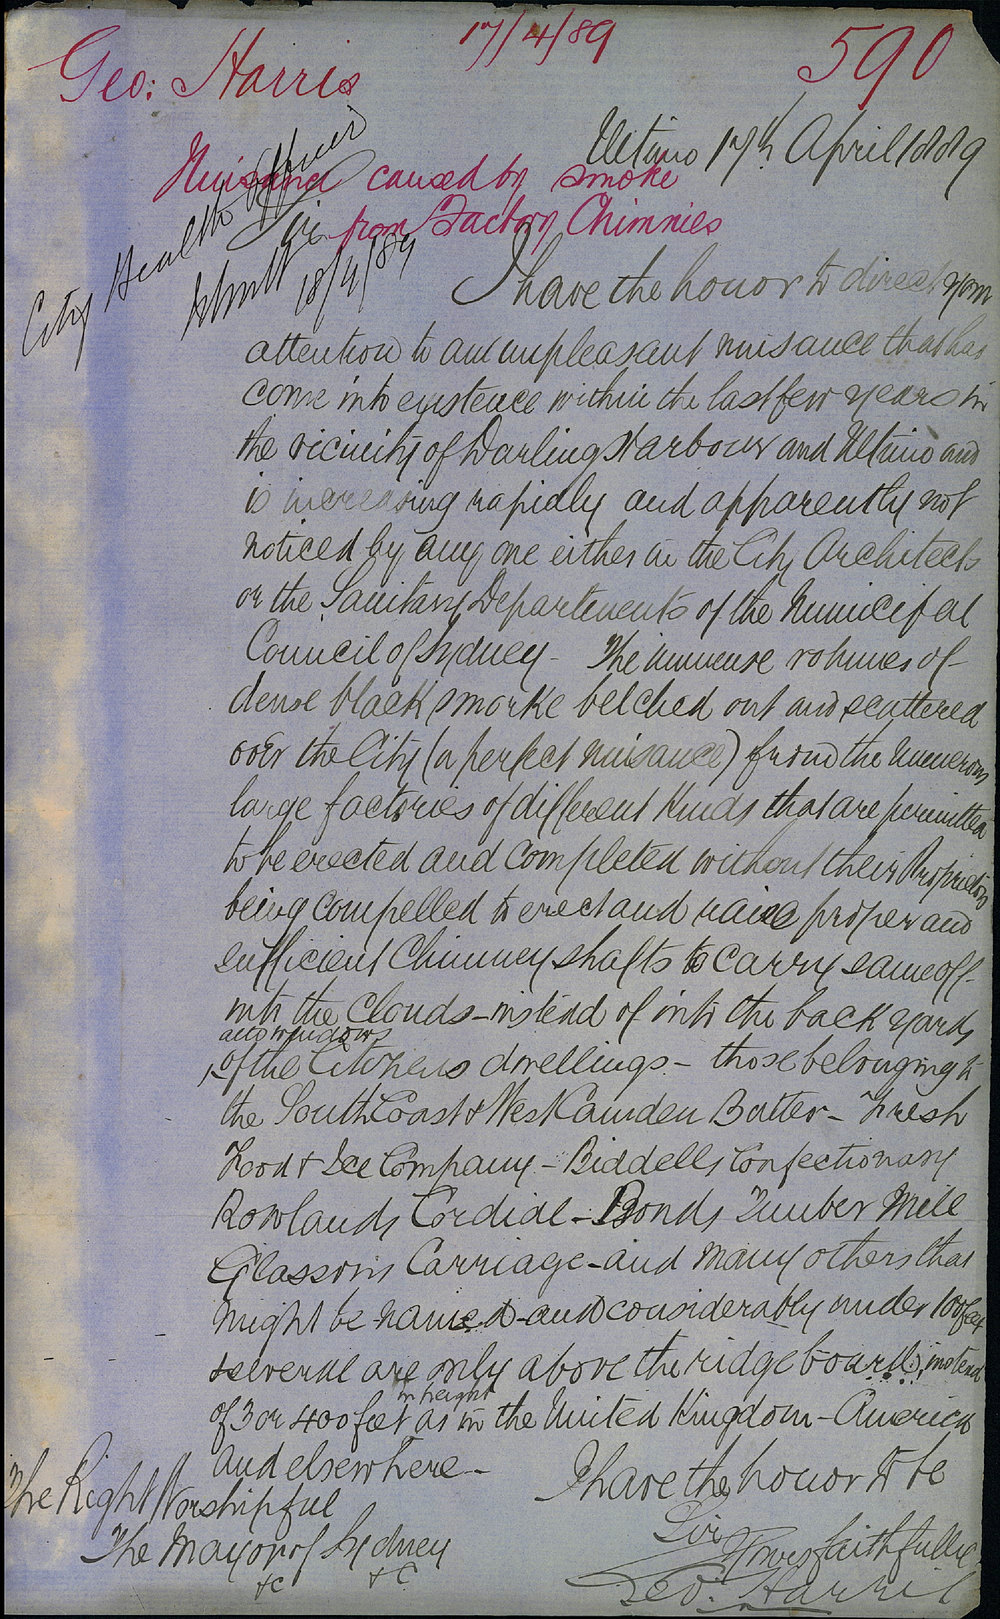 17/4/89
590
Geo: Harris
Ultimo 17th April 1889
Nuisance caused by smoke
from Factory Chimnies
City Health Officer
18/4/89
Sir
I have the honor to direct your
attention to an unpleasant nuisance that has
come into existence within the last few years in
the vicinity of Darling Harbour and Ultimo and
is increasing rapidly and apparently not
noticed by any one either in the City Architects
or the Sanitary Departments of the Municipal
Council of Sydney - The immense volumes of
dense black smorke belched out and scattered
over the City (a perfect nuisance) from the numerous
large factories of different kinds that are permitted
to be erected and completed without their Proprietors
being compelled to erect and raise proper and
sufficient Chimney shafts to carry same off
into the Clouds - instead of into the back yards
and windows
of the Citizens dwellings - those belonging to
the South Coast & West Camden Butter - Fresh
Food & Ice Company - Biddells Confectionary
Rowlands Cordial - Bonds Timber Mill
Glassons Carriage - and many others that
might be named - and considerably under 100 feet
several are only above the ridge boards, instead
in height
of 3 or 400 feet as in the United Kingdom - America
and elsewhere -
I have the honor to be
Sir
Yours faithfully
Geo. Harris
The Right Worshipful
The Mayor of Sydney
&c &c